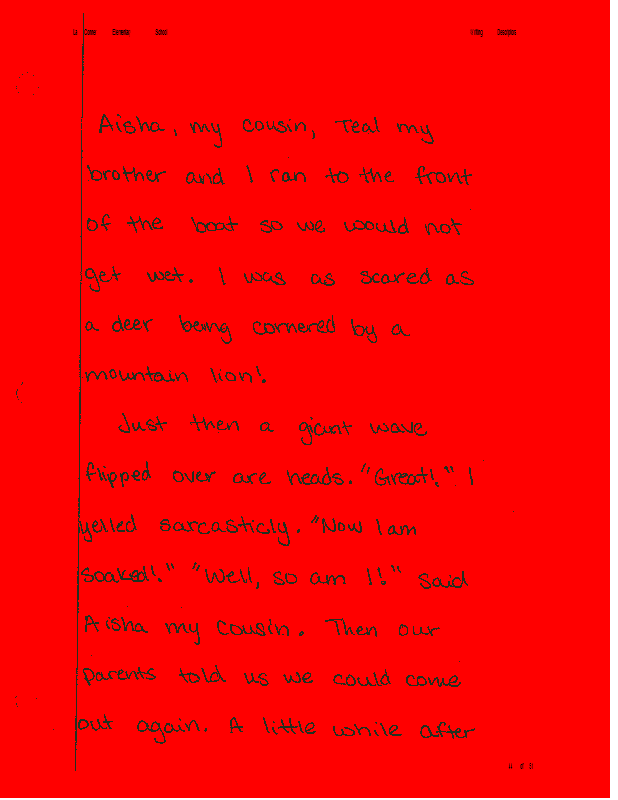 Aisha, my cousin, Teal my
brother and I ran to the front
of the boat so we would not
get wet. I was as scared as
a deer being cornered by a
mountain lion!
Just then a giant wave
flipped over are heads. "Great!" I
yelled sarcasticly. "Now I am
soaked!" "Well, so am I!" said
Aisha my cousin. Then our
parents told us we could come
out again. A little while after